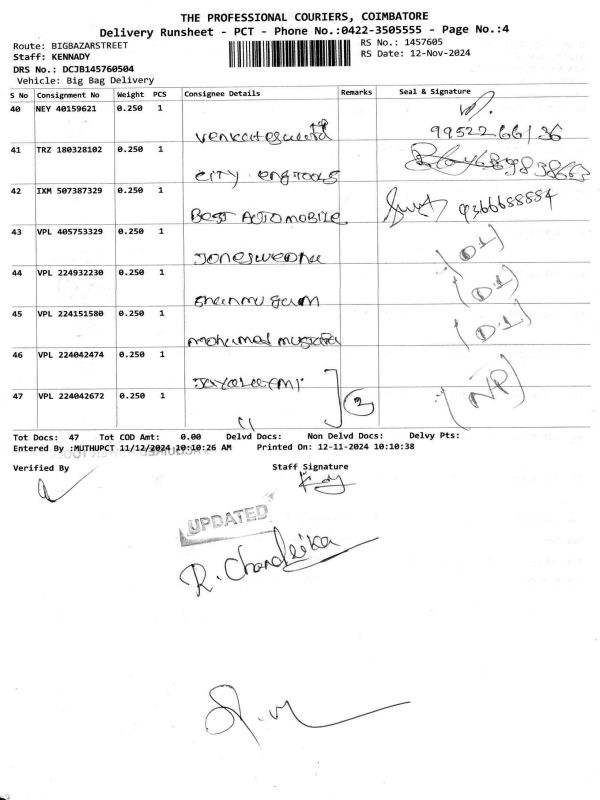 THE PROFESSIONAL COURIERS, COIMBATORE
Delivery Runsheet - PCT - Phone No.:0422-3505555 - Page No.:4
Route: BIGBAZARSTREET
RS No.: 1457605
Staff: KENNADY
RS Date: 12-Nov-2024
DRS No.: DCJB145760504
Vehicle: Big Bag Delivery
S No Consignment No Weight PCS Consignee Details Remarks Seal & Signature
40 NEY 40159621 0.250 1
9952266136
41 TRZ 180328102 0.250 1
CITY ENGTOOLS
42 IXM 507387329 0.250 1
BEST AUTOMOBILE 9366688884
43 VPL 405753329 0.250 1
(D1)
44 VPL 224932230 0.250 1
(D1)
45 VPL 224151580 0.250 1
(D1)
46 VPL 224042474 0.250 1
47 VPL 224042672 0.250 1
2 (NP)
"
Tot Docs: 47 Tot COD Amt: 0.00 Delvd Docs: Non Delvd Docs: Delvy Pts:
Entered By :MUTHUPCT 11/12/2024 10:10:26 AM Printed On: 12-11-2024 10:10:38
Verified By Staff Signature
UPDATED
R. Chandrika